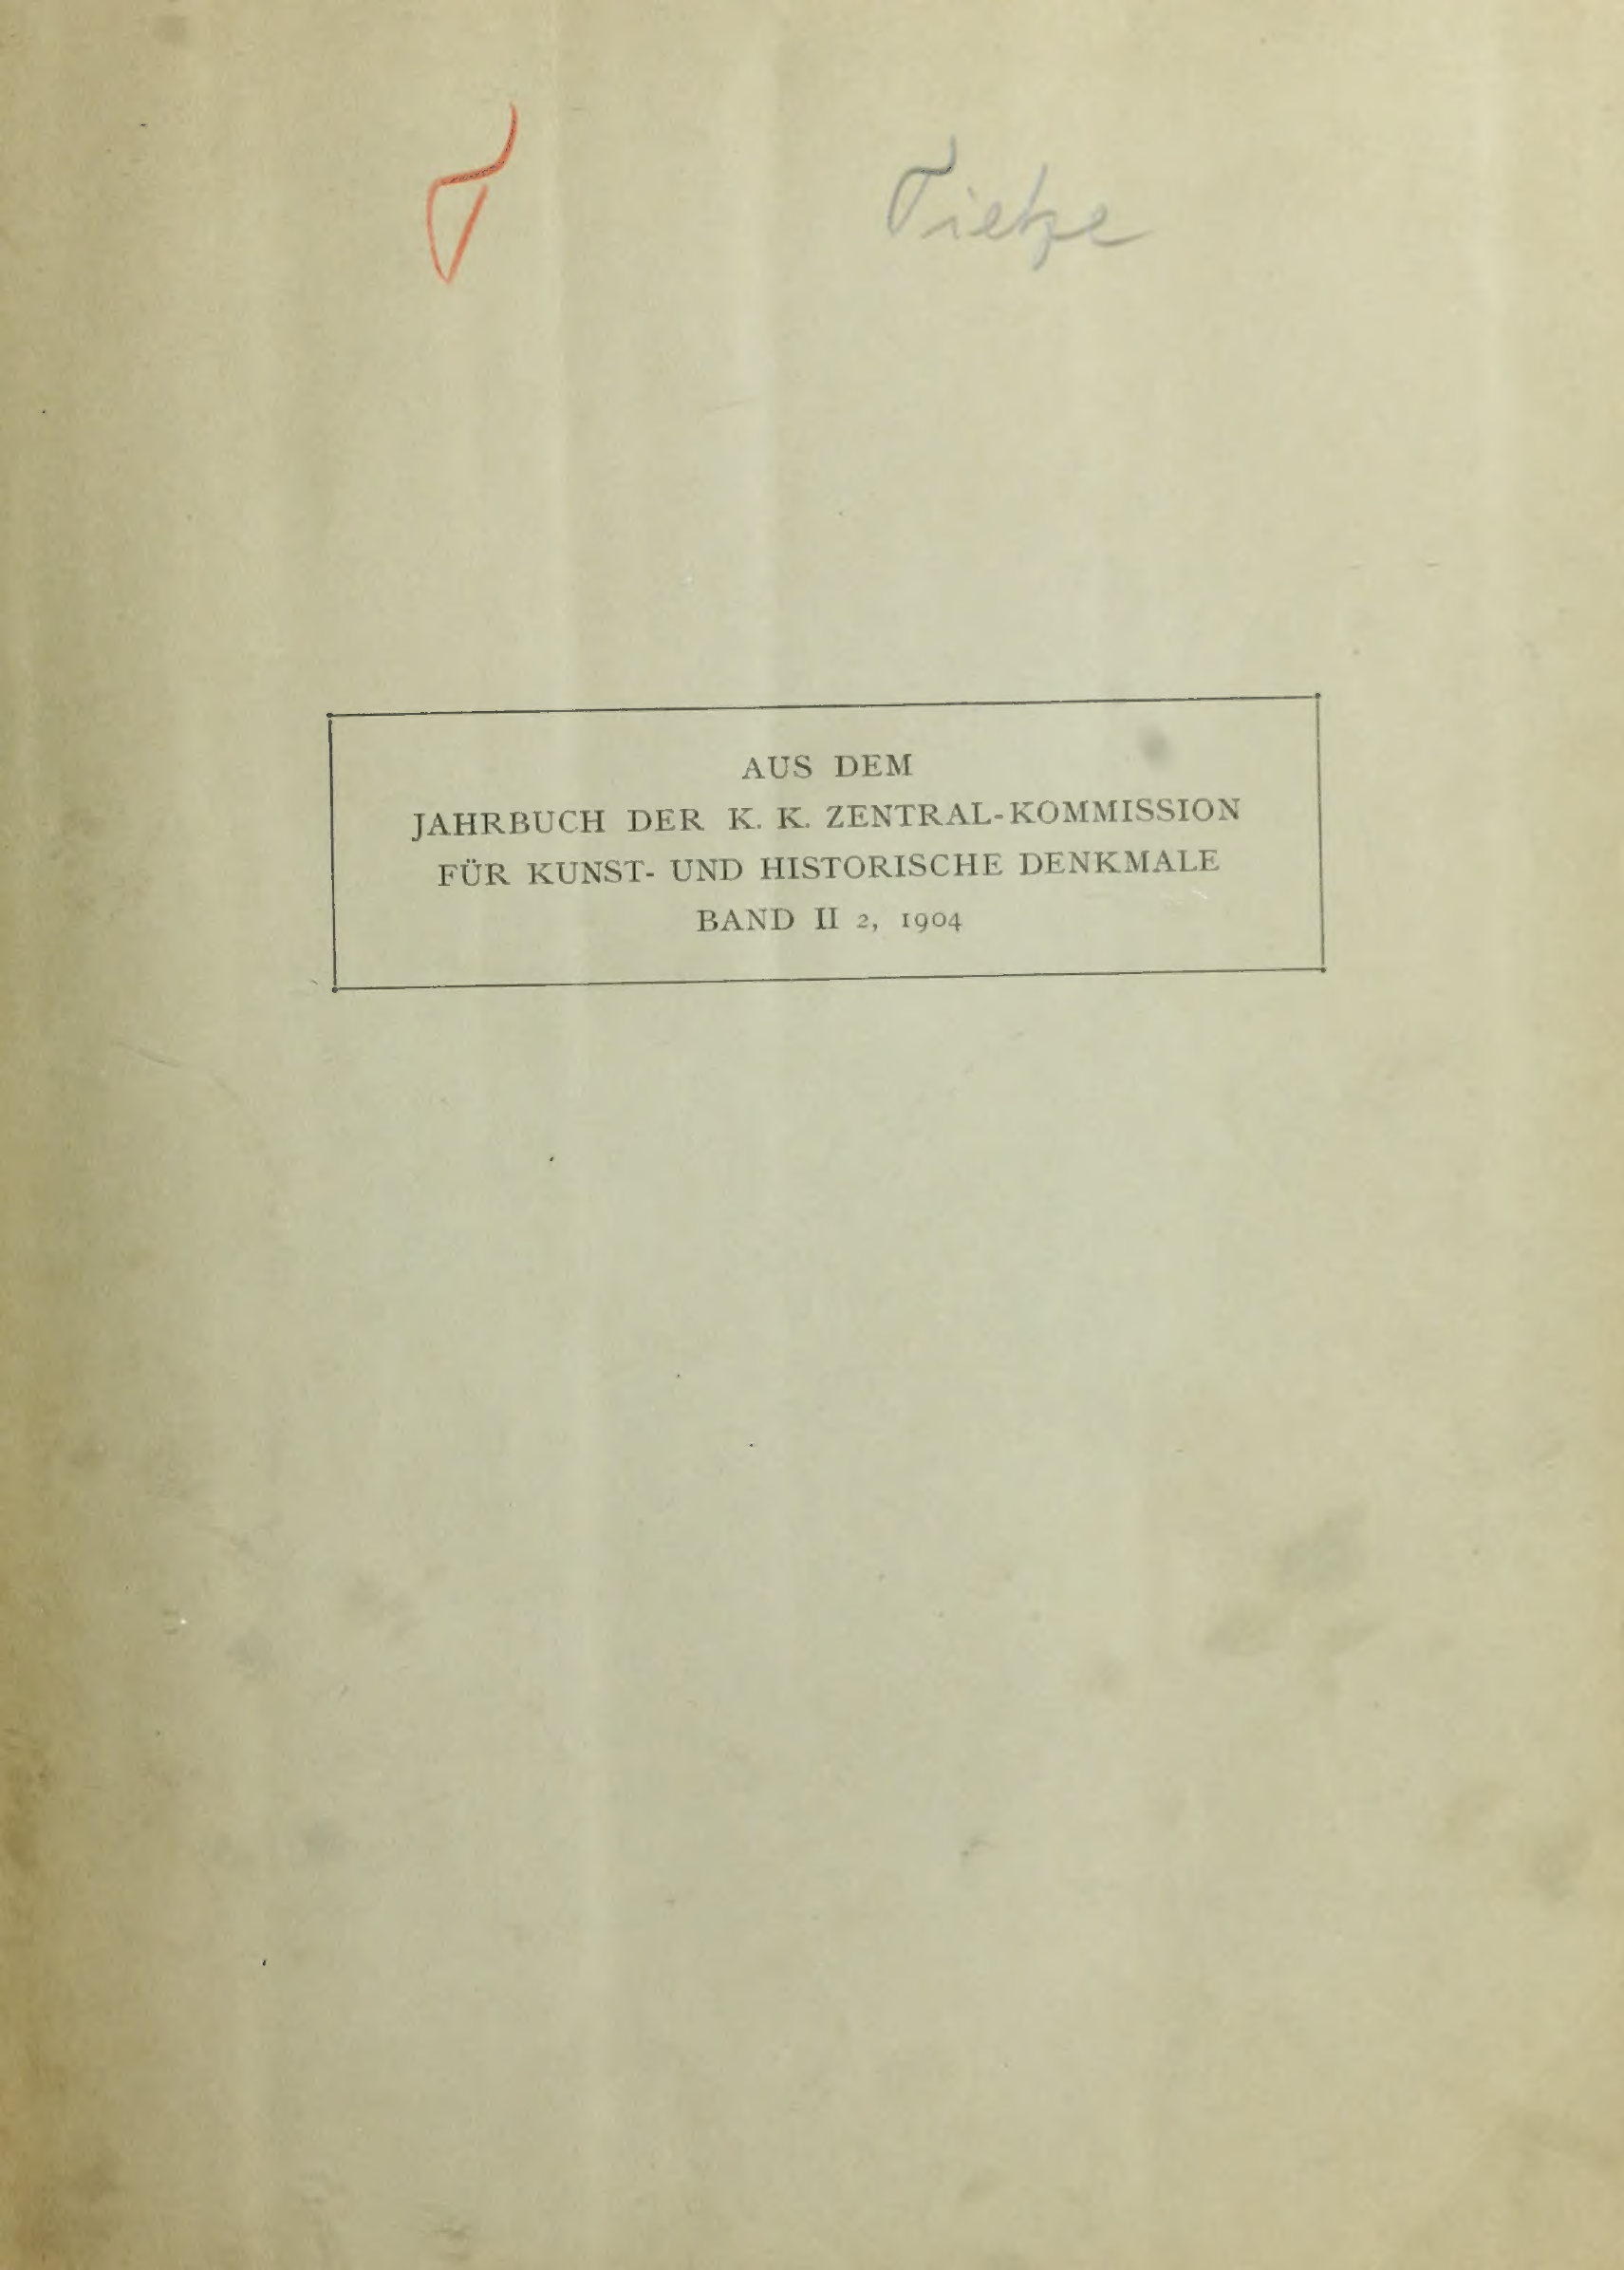 T Tietze
AUS DEM
JAHRBUCH DER K. K. ZENTRAL-KOMMISSION
FÜR KUNST- UND HISTORISCHE DENKMALE
BAND II 2, 1904